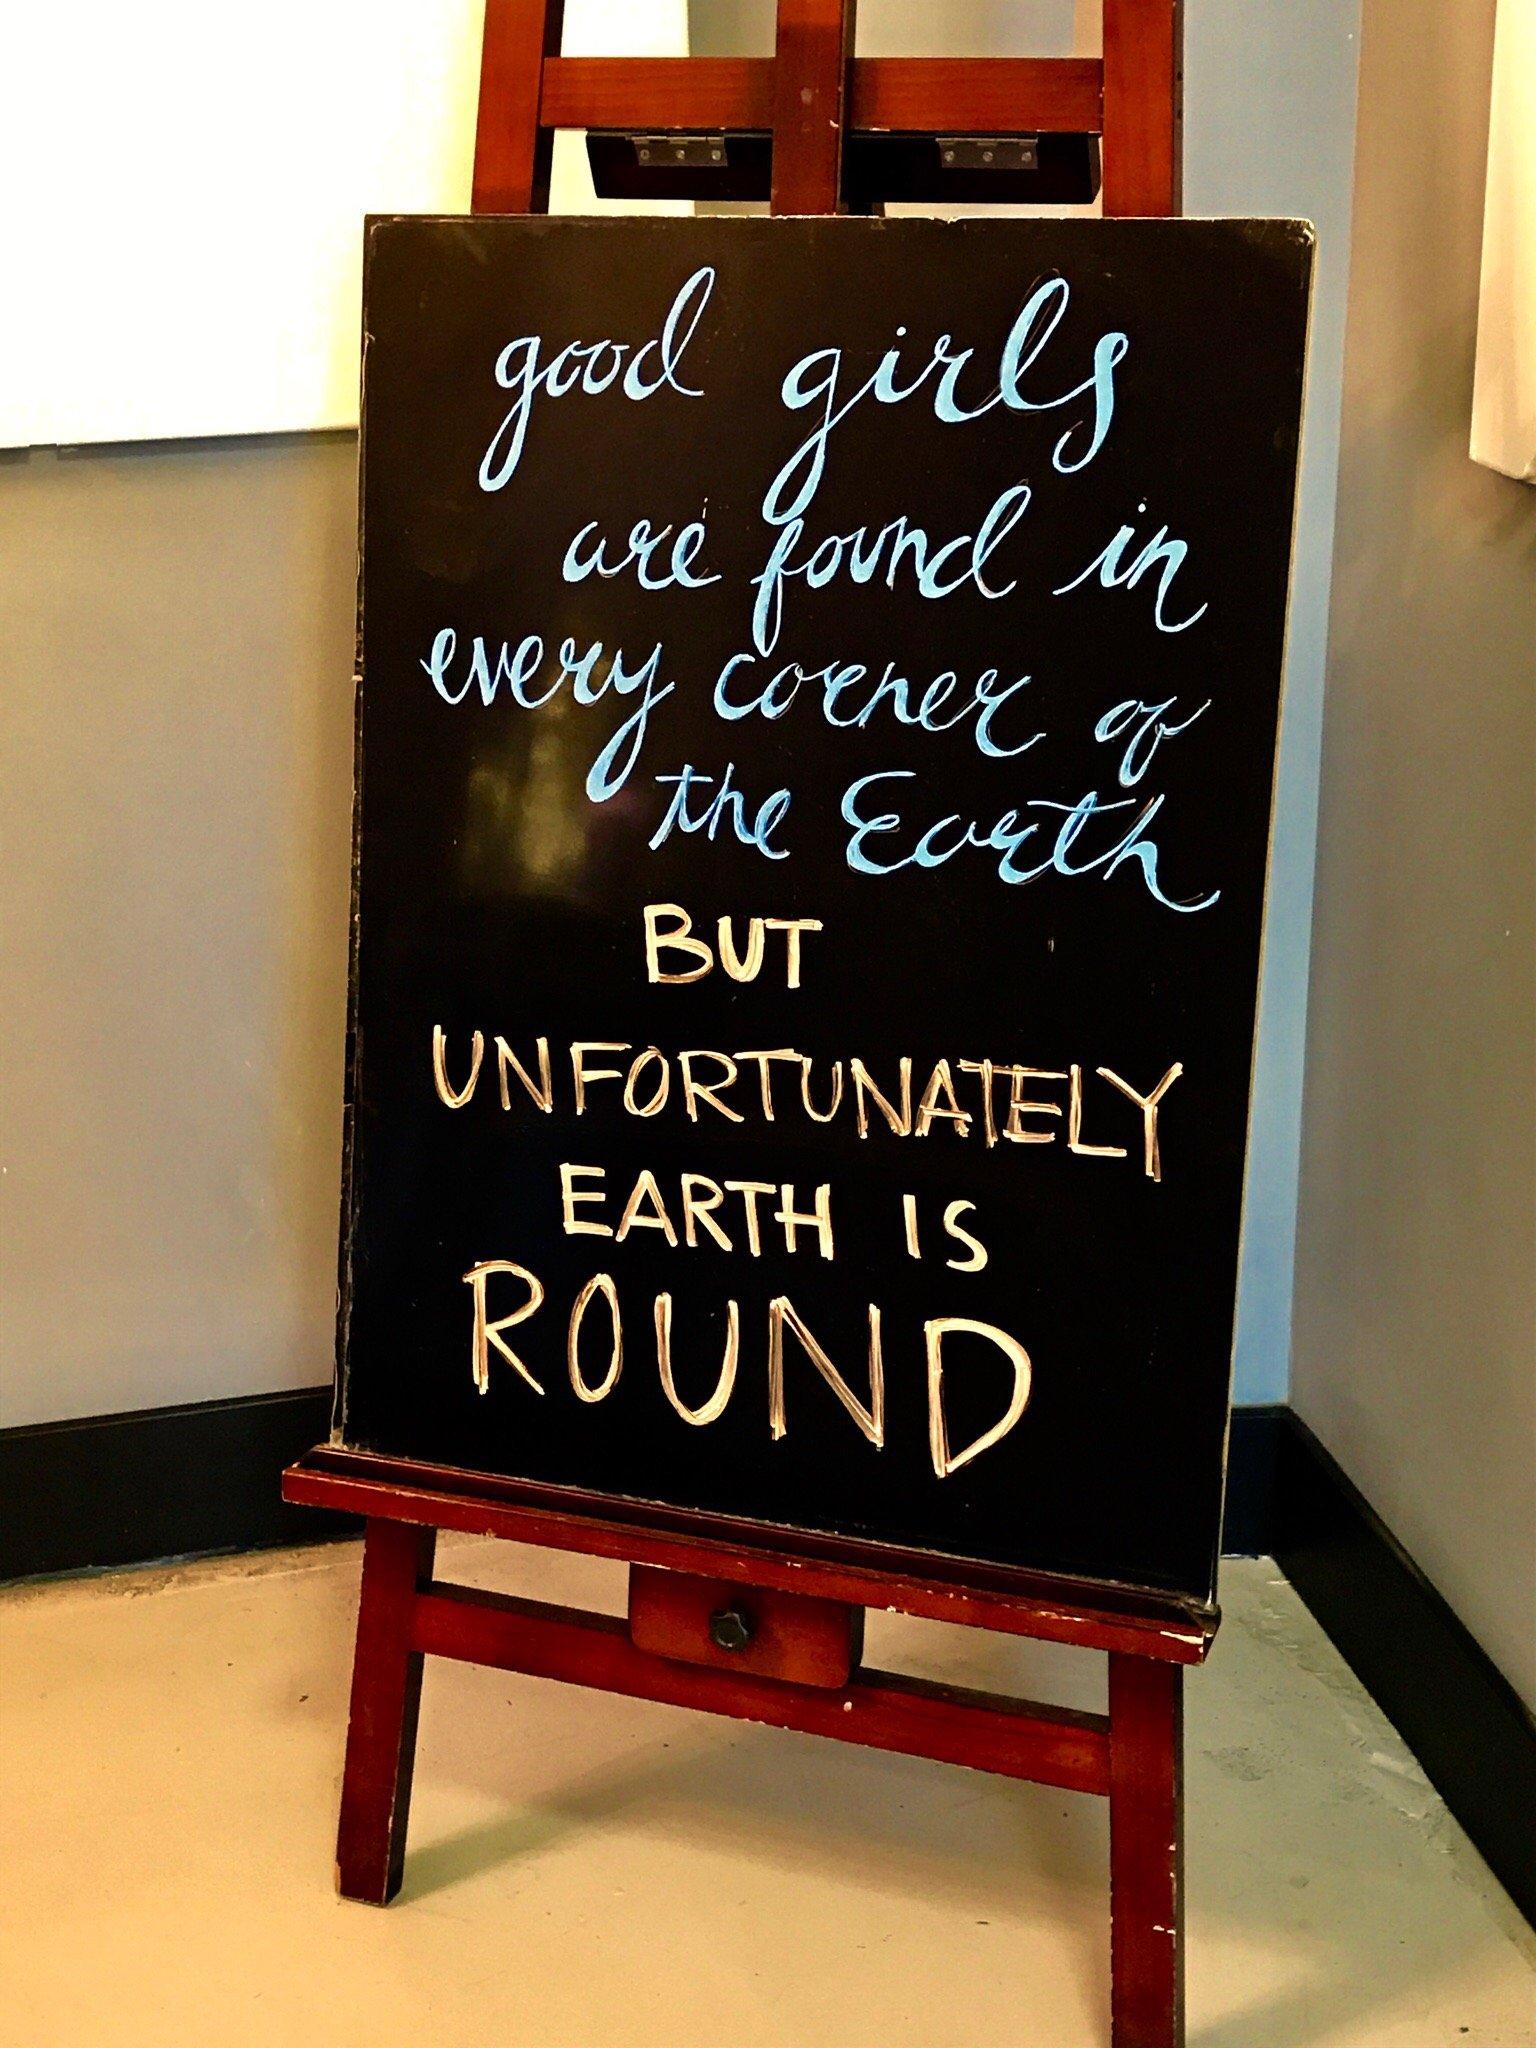 good girls
are found in
every corner of
the Earth
BUT
UNFORTUNATELY
EARTH IS
ROUND